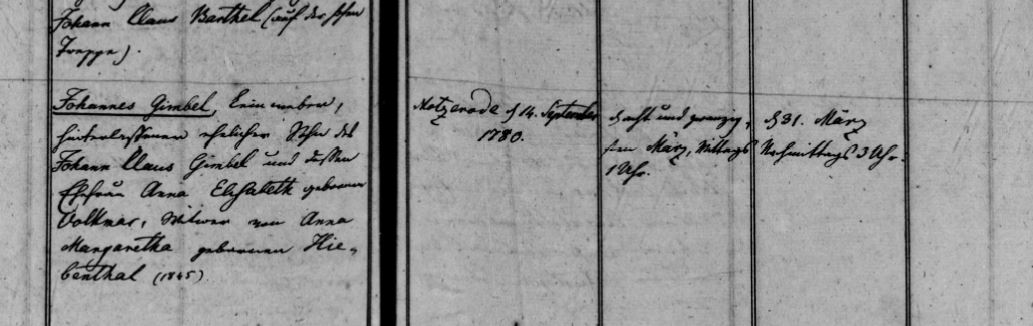 Johann Claus Barthel (auf der hohen
Treppe).
Johannes Gimbel, Leineweber,
hinterlassener ehelicher Sohn des
Johann Claus Gimbel und dessen
Ehefrau Anna Elisabeth geborenen
Volkmar, Witwer von Anna
Margaretha geborenen Hie-
benthal (1845)
Motzenrode d 14. September
1780.
d acht und zwanzig-
sten März, Mittags
1 Uhr.
d 31. März
Nachmittags 3 Uhr.